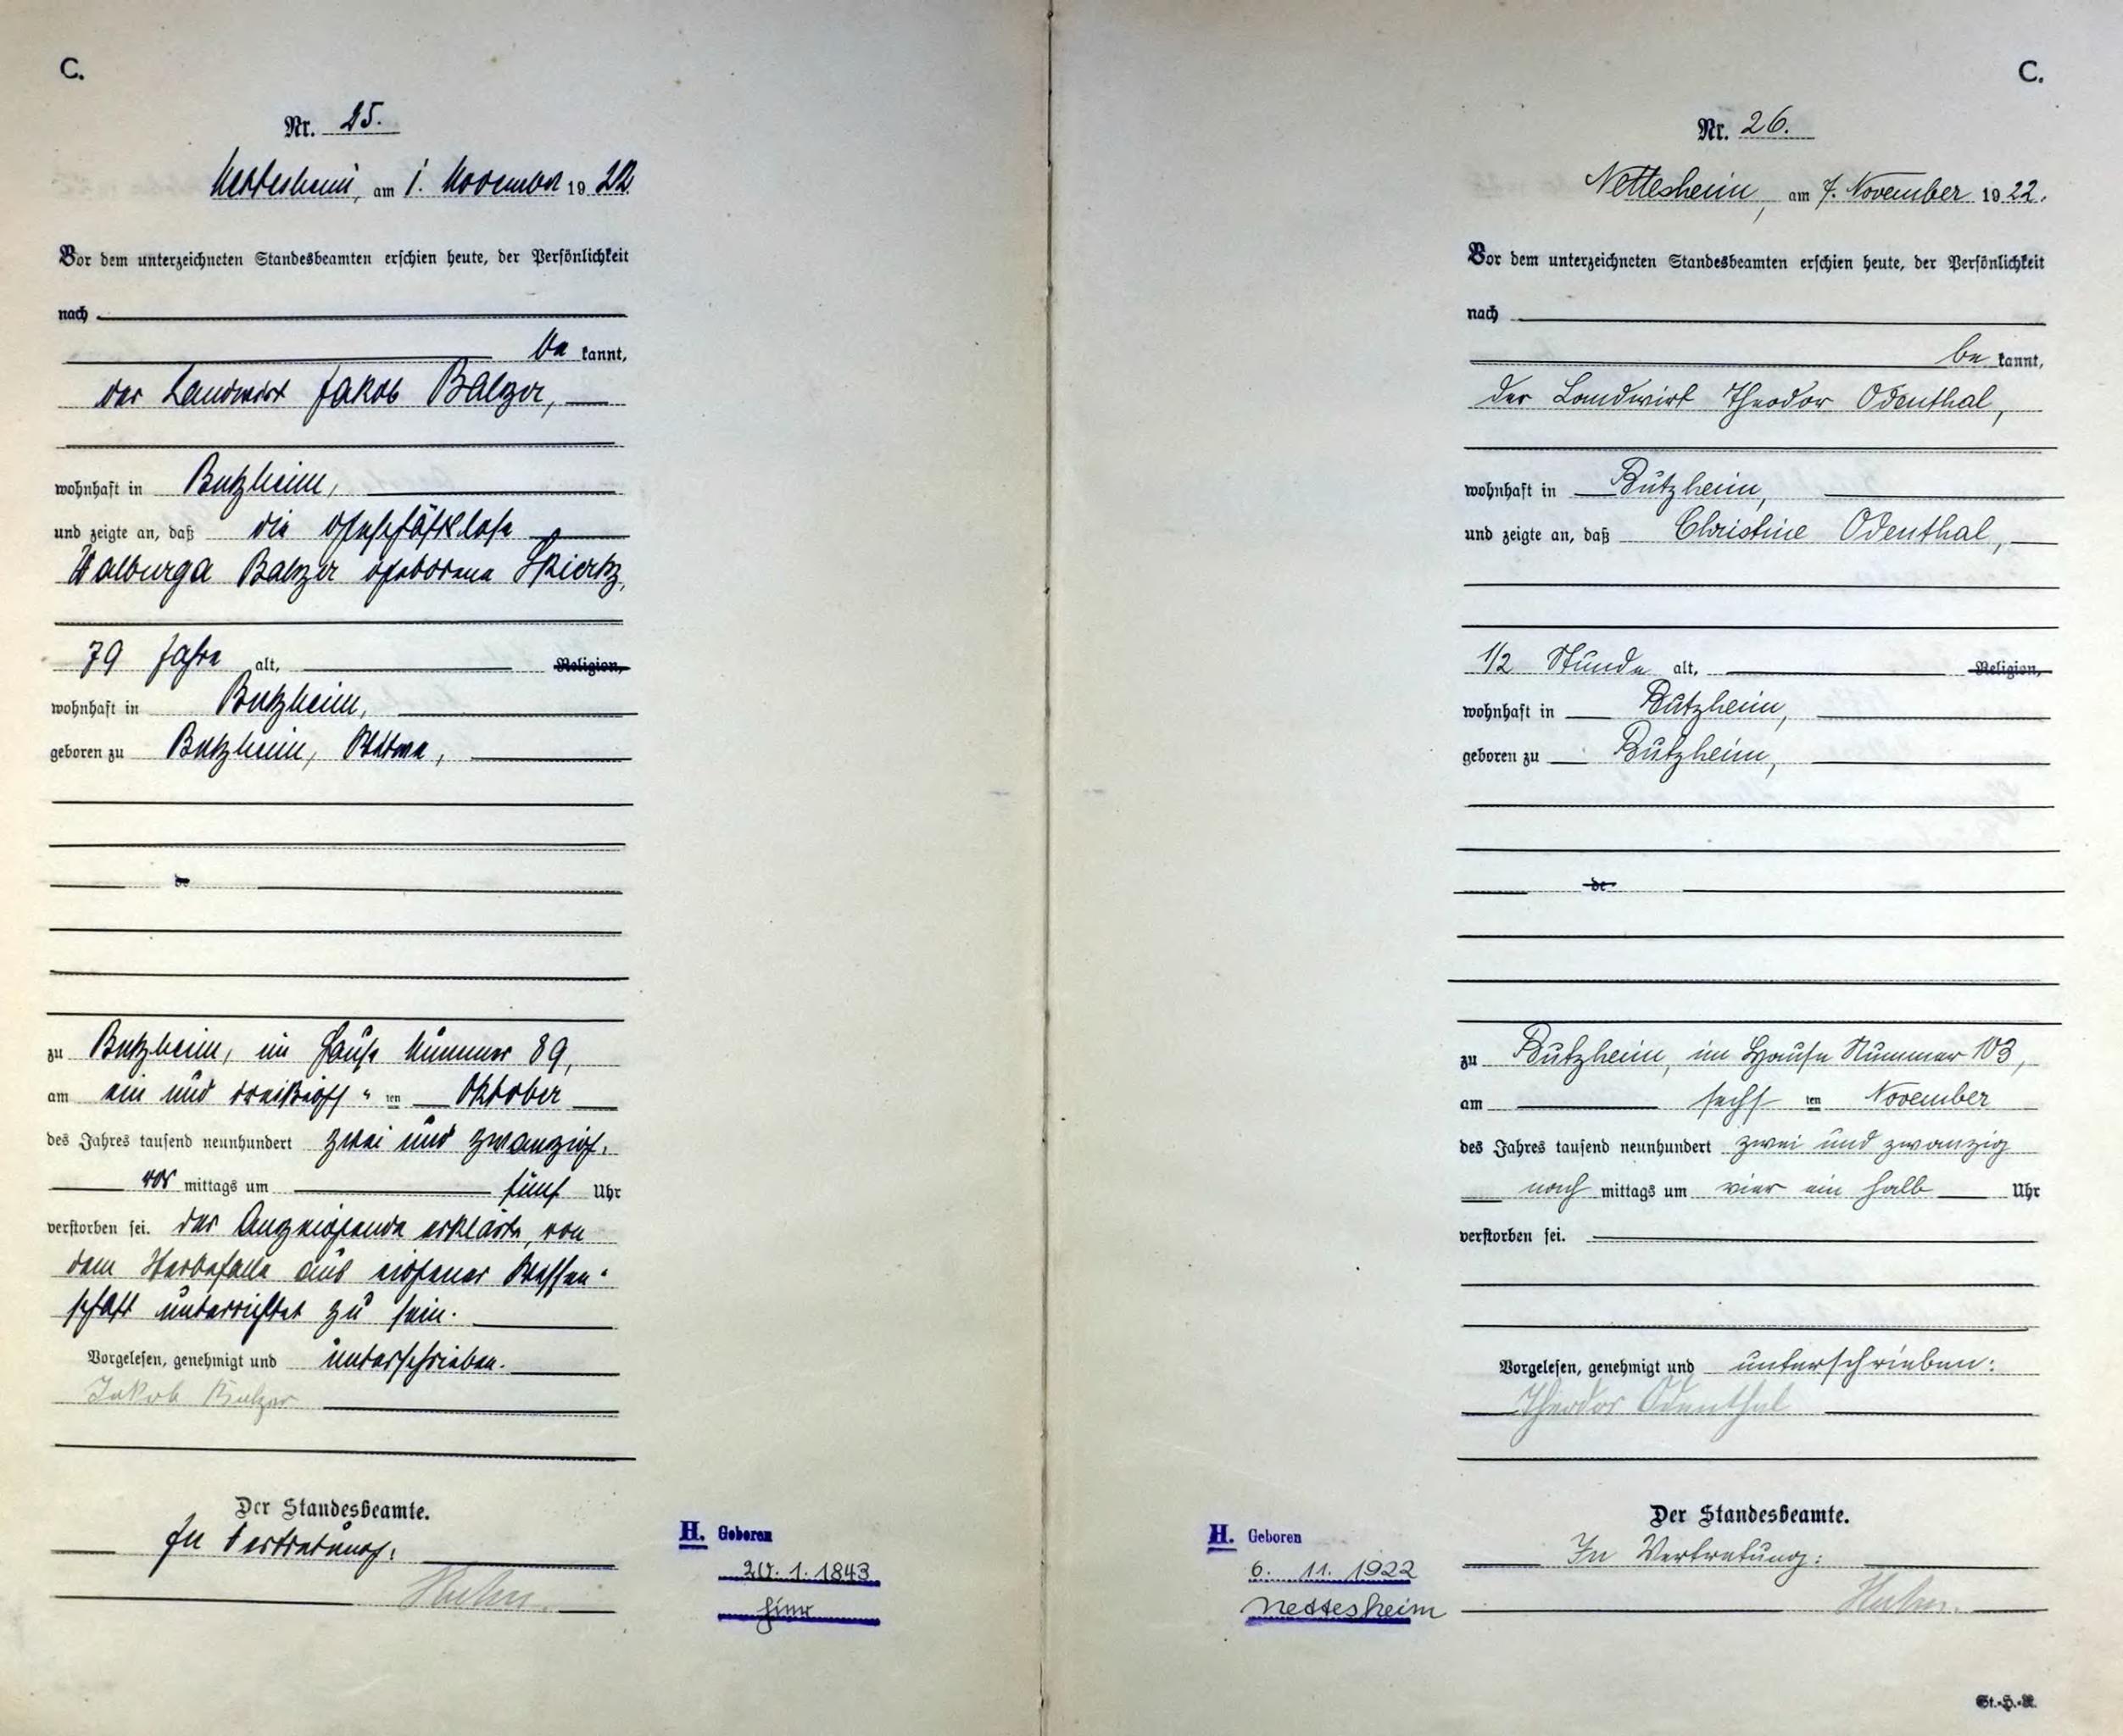 C.
Nr. 25.
Nettesheim, am 1. November 1922.
Vor dem unterzeichneten Standesbeamten erschien heute, der Persönlichkeit
nach
be kannt,
der Landwirt Jakob Balzer,
wohnhaft in Butzheim,
und zeigte an, daß die geschäftslose
Walburga Balzer geborene Spiertz,
79 Jahre alt, Religion,
wohnhaft in Butzheim,
geboren zu Butzheim, Witwe,
de
zu Butzheim, im Hause Nummer 89,
am ein und dreißigs ten Oktober
des Jahres tausend neunhundert zwei und zwanzig,
vor mittags um fünf Uhr
verstorben sei. Der Anzeigende erklärte, von
dem Sterbefalle aus eigener Wissen-
schaft unterrichtet zu sein.
Vorgelesen, genehmigt und unterschrieben.
Jakob Balzer
Der Standesbeamte.
In Vertretung:
H. Geboren
20. 1. 1843
hier
C.
Nr. 26.
Nettesheim, am 7. November 1922.
Vor dem unterzeichneten Standesbeamten erschien heute, der Persönlichkeit
nach
be kannt,
der Landwirt Theodor Odenthal,
wohnhaft in Butzheim,
und zeigte an, daß Christine Odenthal,
1/2 Stunde alt, Religion,
wohnhaft in Butzheim,
geboren zu Butzheim,
de
zu Butzheim, im Hause Nummer 103,
am sechs ten November
des Jahres tausend neunhundert zwei und zwanzig
nach mittags um vier ein halb Uhr
verstorben sei.
Vorgelesen, genehmigt und unterschrieben:
Theodor Odenthal
Der Standesbeamte.
In Vertretung:
H. Geboren
6. 11. 1922
Nettesheim
St.-H.-R.